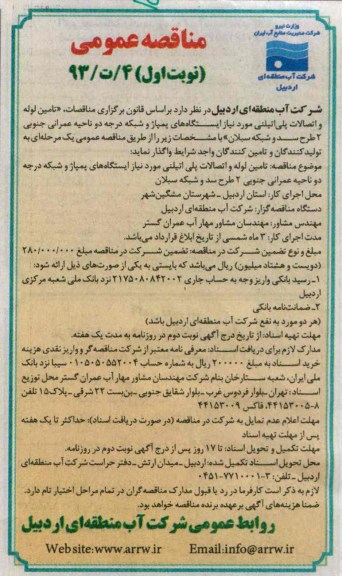 وزارت نیرو
شرکت مدیریت منابع آب ایران
شرکت آب منطقه‌ای
اردبیل
مناقصه عمومی
(نوبت اول) ۴/ت/۹۳
شرکت آب منطقه‌ای اردبیل در نظر دارد براساس قانون برگزاری مناقصات، «تامین لوله
و اتصالات پلی‌اتیلنی مورد نیاز ایستگاه‌های پمپاژ و شبکه درجه دو ناحیه عمرانی جنوبی
۲ طرح سد و شبکه سبلان» با مشخصات زیر را از طریق مناقصه عمومی یک مرحله‌ای به
تولیدکنندگان و تامین کنندگان واجد شرایط واگذار نماید:
موضوع مناقصه: تامین لوله و اتصالات پلی اتیلنی مورد نیاز ایستگاه‌های پمپاژ و شبکه درجه
دو ناحیه عمرانی جنوبی ۲ طرح سد و شبکه سبلان
محل اجرای کار: استان اردبیل - شهرستان مشگین‌شهر
دستگاه مناقصه‌گزار: شرکت آب منطقه‌ای اردبیل
مهندس مشاور: مهندسان مشاور مهار آب عمران گستر
مدت اجرای کار: ۳ ماه شمسی از تاریخ ابلاغ قرارداد می‌باشد.
مبلغ و نوع تضمین شرکت در مناقصه: تضمین شرکت در مناقصه مبلغ ۲۸۰/۰۰۰/۰۰۰
(دویست و هشتاد میلیون) ریال می‌باشد که بایستی به یکی از صورت‌های ذیل ارائه شود:
۱-رسید بانکی واریز وجه به حساب جاری ۲۱۷۵۰۸۰۸۴۲۰۰۲ نزد بانک ملی شعبه مرکزی
اردبیل
۲-ضمانت‌نامه بانکی
(هر دو مورد به نفع شرکت آب منطقه‌ای اردبیل باشد)
مهلت تهیه اسناد: از تاریخ درج آگهی نوبت دوم در روزنامه به مدت یک هفته.
مدارک لازم برای دریافت اسناد: معرفی نامه معتبر از شرکت مناقصه‌گر و واریز نقدی هزینه
خرید اسناد به مبلغ ۲۰۰۰۰۰ ریال به شماره حساب ۰۱۰۵۰۵۰۵۵۲۰۰۴ سیبا نزد بانک
ملی ایران، شعبه ستارخان بنام شرکت مهندسان مشاور مهار آب عمران گستر محل توزیع
اسناد: تهران - بلوار فردوس غرب - بلوار شقایق جنوبی - بن‌بست ۲۲ شرقی - پلاک ۱۵ تلفن
۸-۴۴۱۵۳۰۰۵ فاکس ۴۴۱۵۳۰۰۹
مهلت اعلام عدم تمایل به شرکت در مناقصه (در صورت دریافت اسناد): حداکثر تا یک هفته
پس از مهلت تهیه اسناد
مهلت تکمیل و تحویل اسناد: تا ۱۷ روز پس از درج آگهی نوبت دوم در روزنامه.
محل تحویل اسناد تکمیل شده: اردبیل - میدان ارتش - دفتر حراست شرکت آب منطقه‌ای
اردبیل - تلفن: ۳-۷۷۱۰۰۰۱-۰۴۵۱
لازم به ذکر است کارفرما در رد یا قبول مدارک مناقصه‌گران در تمام مراحل اختیار تام دارد.
ضمنا هزینه‌های آگهی برعهده برنده مناقصه خواهد بود.
روابط عمومی شرکت آب منطقه‌ای اردبیل
Website:www.arrw.ir Email:info@arrw.ir